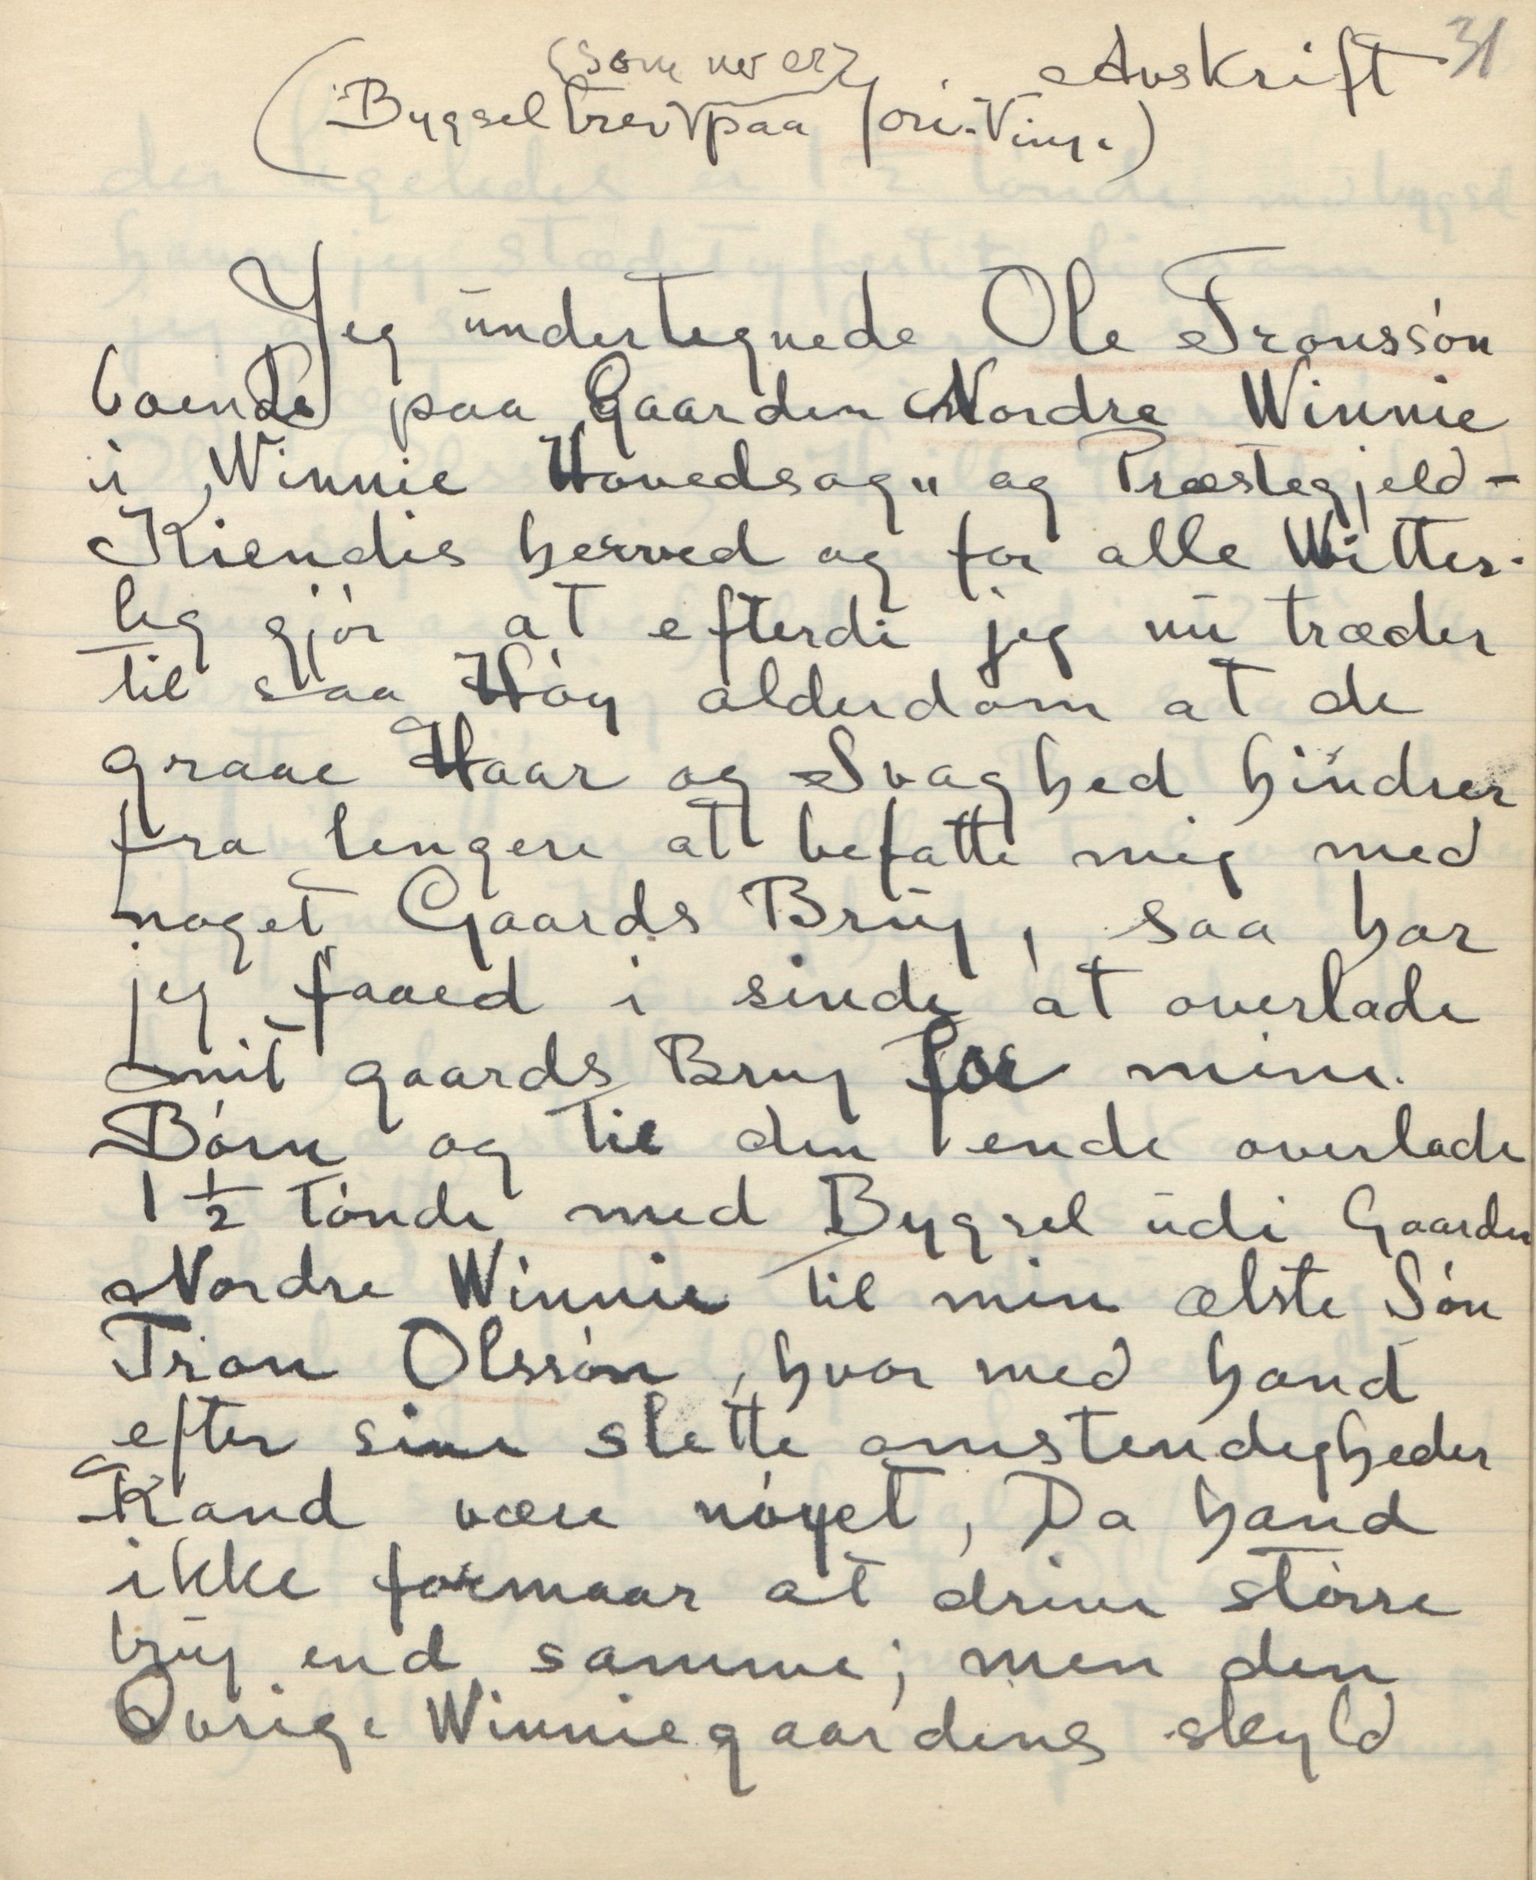 Avskrift 31
(som no er)
(Bygselbrev paa Jori-Vinje)
Jeg undertegnede Ole Tronssón
boende paa Gaarden Nordre Winnie
i „Winnie Hovedsogn" og Præstegjeld-
Kiendis herved og for alle Witter-
lig gjór at efterdi jeg nu træder
til saa Hóy alderdom at de
graae Haar og Svaghed hindrer
fra lengere at befatte mig med
noget Gaards Brug, saa har
jeg faaed i sinde at overlade
mit gaards Brug for mine
Bórn og til den ende overlade
1 1/2 Tónde med Bygsel udi Gaarden
Nordre Winnie til min ælste Són
Tron Olssón, hvor med hand
efter sine slette omstendigheder
Kand være nóyet, Da hand
ikke formaar at drive stórre
brug end samme; men den
Ovrige Winniegaardens skyld